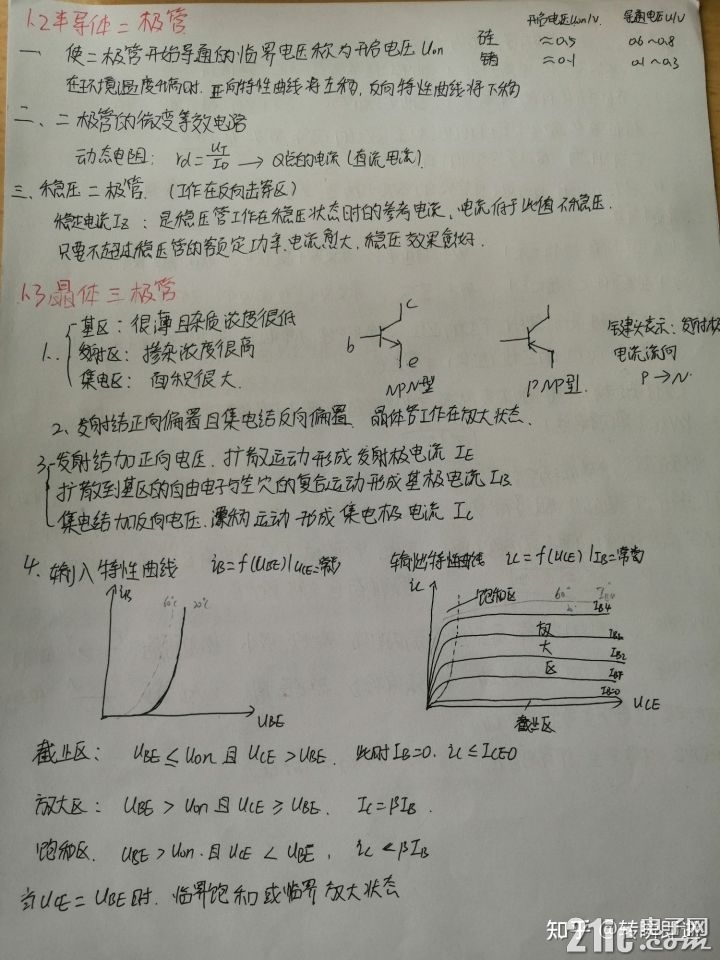 1.2半导体二极管
开启电压Uon/V 导通电压U/V
硅 ≈0.5 0.6~0.8
锗 ≈0.1 0.1~0.3
一 使二极管开始导通的临界电压称为开启电压 Uon
在环境温度升高时.正向特性曲线将左移,反向特性曲线将下移
二、二极管的微变等效电路
动态电阻: rd=UT/ID → Q点的电流(直流电流)
三、稳压二极管.(工作在反向击穿区)
稳定电流IZ:是稳压管工作在稳压状态时的参考电流,电流低于此值不稳压.
只要不超过稳压管的额定功率.电流愈大.稳压效果愈好.
1.3晶体三极管
1. 基区:很薄且杂质浓度很低
发射区:掺杂浓度很高
集电区:面积很大.
b c e
NPN型
PNP型.
箭头表示:发射极
电流流向
P→N.
2、发射结正向偏置且集电结反向偏置.晶体管工作在放大状态.
3. 发射结加正向电压.扩散运动形成发射极电流 IE
扩散到基区的自由电子与空穴的复合运动形成基极电流 IB
集电结加反向电压.漂移运动形成集电极电流 IC
4. 输入特性曲线 iB=f(UBE)|UCE=常数
输出特性曲线 iC=f(UCE)|IB=常数
iB 60℃ 20℃
UBE
iC 饱和区 60° 20°
IB4
放 IB3
大 IB2
区 IB1
IB=0
UCE
截止区
截止区: UBE≤Uon 且 UCE>UBE. 此时IB=0. iC≤ICEO
放大区: UBE>Uon 且 UCE≥UBE. IC=βIB.
饱和区. UBE>Uon.且 UCE<UBE, iC<βIB
当UCE=UBE时.临界饱和或临界放大状态
知乎
21ic电子网
.com